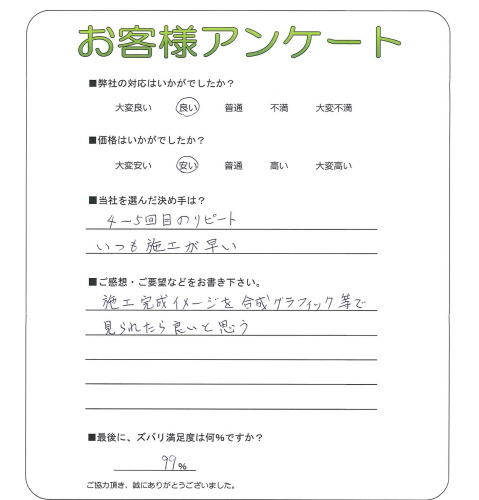 お客様アンケート
■弊社の対応はいかがでしたか？
大変良い 良い 普通 不満 大変不満
■価格はいかがでしたか？
大変安い 安い 普通 高い 大変高い
■当社を選んだ決め手は？
4～5回目のリピート
いつも施工が早い
■ご感想・ご要望などをお書き下さい。
施工完成イメージを合成グラフィック等で
見られたら良いと思う
■最後に、ズバリ満足度は何％ですか？
99％
ご協力頂き、誠にありがとうございました。